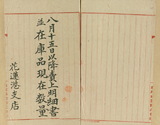 八月十五日以降賣上明細書
並在庫品現在数量
花蓮港支店